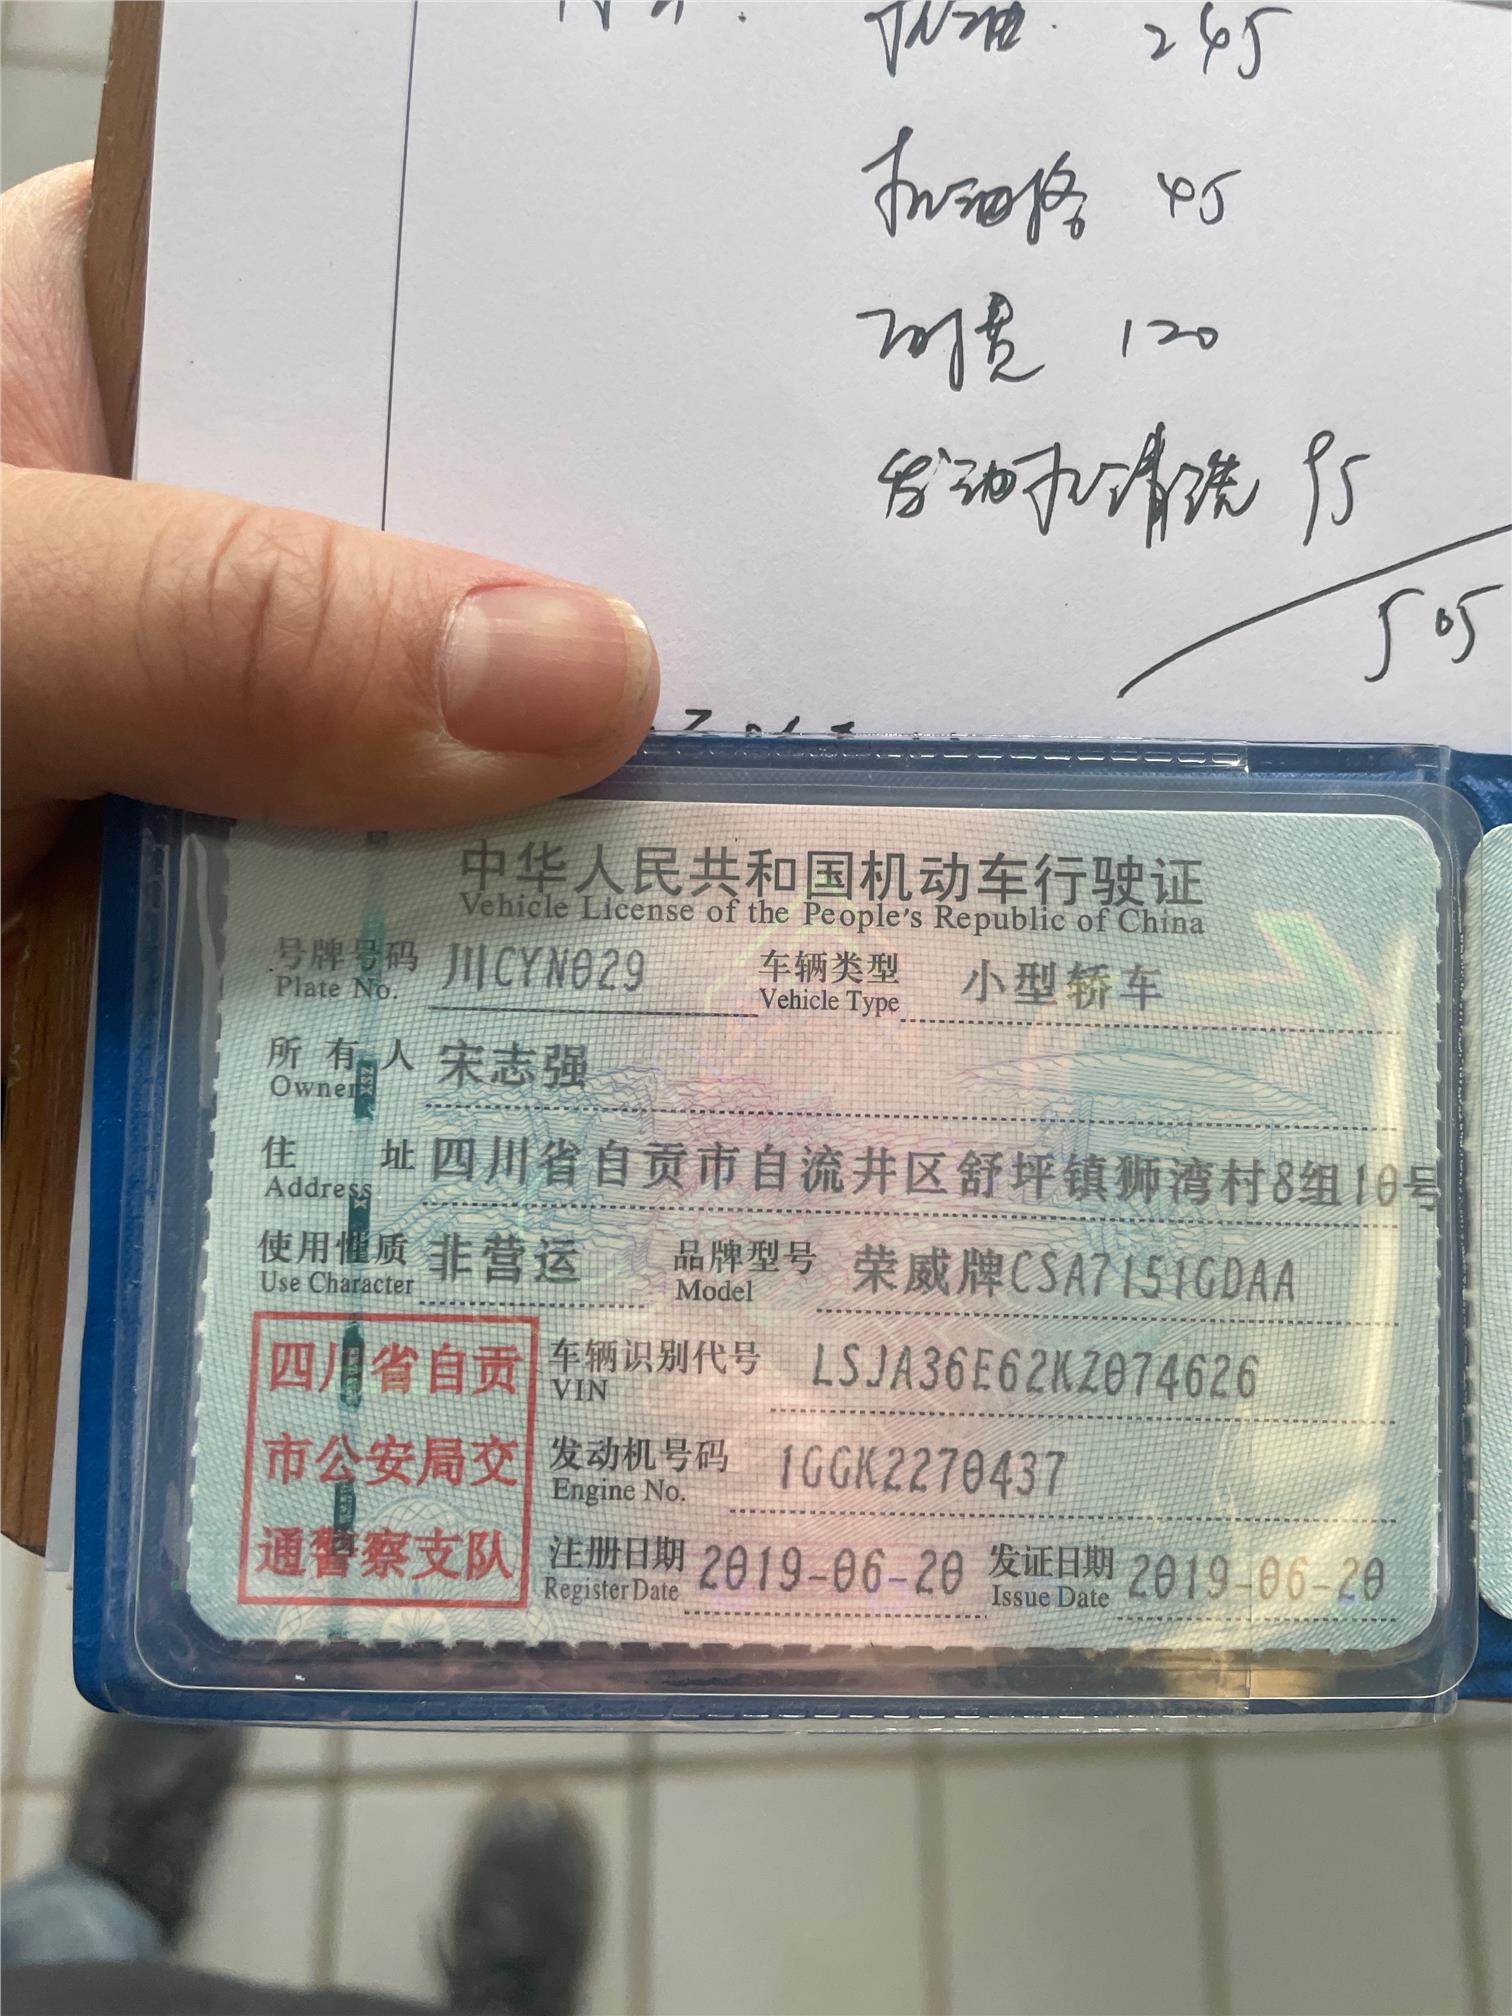 机油. 245
机油格 45
工时费 120
发动机清洗 95
505
中华人民共和国机动车行驶证
Vehicle License of the People's Republic of China
号牌号码 川CYN029 车辆类型 小型轿车
Plate No. Vehicle Type
所有人 宋志强
Owner
住址 四川省自贡市自流井区舒坪镇狮湾村8组10号
Address
使用性质 非营运 品牌型号 荣威牌CSA7151GDAA
Use Character Model
四川省自贡
市公安局交
通警察支队
车辆识别代号 LSJA36E62KZ074626
VIN
发动机号码 1GGK2270437
Engine No.
注册日期 2019-06-20 发证日期 2019-06-20
Register Date Issue Date